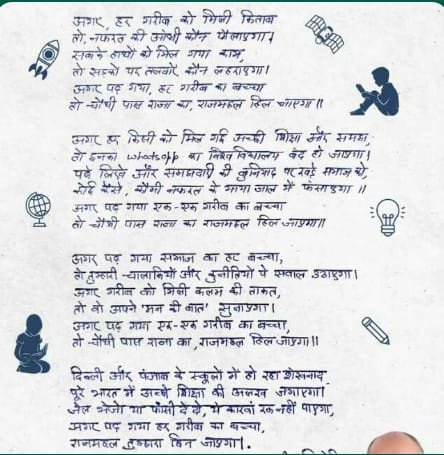 अगर, हर गरीब को मिली किताब
तो, नफरत की आंधी कौन फैलाएगा।
सबके हाथों को मिल गया काम,
तो सड़कों पर तलवारें कौन लहराएगा।
अगर पढ़ गया, हर गरीब का बच्चा
तो चौथी पास राजा का, राजमहल हिल जाएगा॥
अगर हर किसी को मिल गई अच्छी शिक्षा और समझ,
तो इनका whatsapp का विश्व विद्यालय बंद हो जाएगा।
पढ़े लिखे और समझदारी की बुनियाद पर खड़े समाज को,
कोई कैसे, कौमी नफरत के माया जाल में फंसाएगा॥
अगर पढ़ गया एक-एक गरीब का बच्चा
तो चौथी पास राजा का राजमहल हिल जाएगा॥
अगर पढ़ गया समाज का हर बच्चा,
तो तुम्हारी चालाकियों और कुनीतियों पे सवाल उठाएगा।
अगर गरीब को मिली कलम की ताकत,
तो वो अपने 'मन की बात' सुनाएगा।
अगर पढ़ गया एक-एक गरीब का बच्चा,
तो चौथी पास राजा का, राजमहल हिल जाएगा॥
दिल्ली और पंजाब के स्कूलों में हो रहा शंखनाद
पूरे भारत में अच्छी शिक्षा की अलख जगाएगा।
जेल भेजो या फांसी दे दो, ये कारवां रुक नहीं पाएगा,
अगर पढ़ गया हर गरीब का बच्चा,
राजमहल तुम्हारा हिल जाएगा।